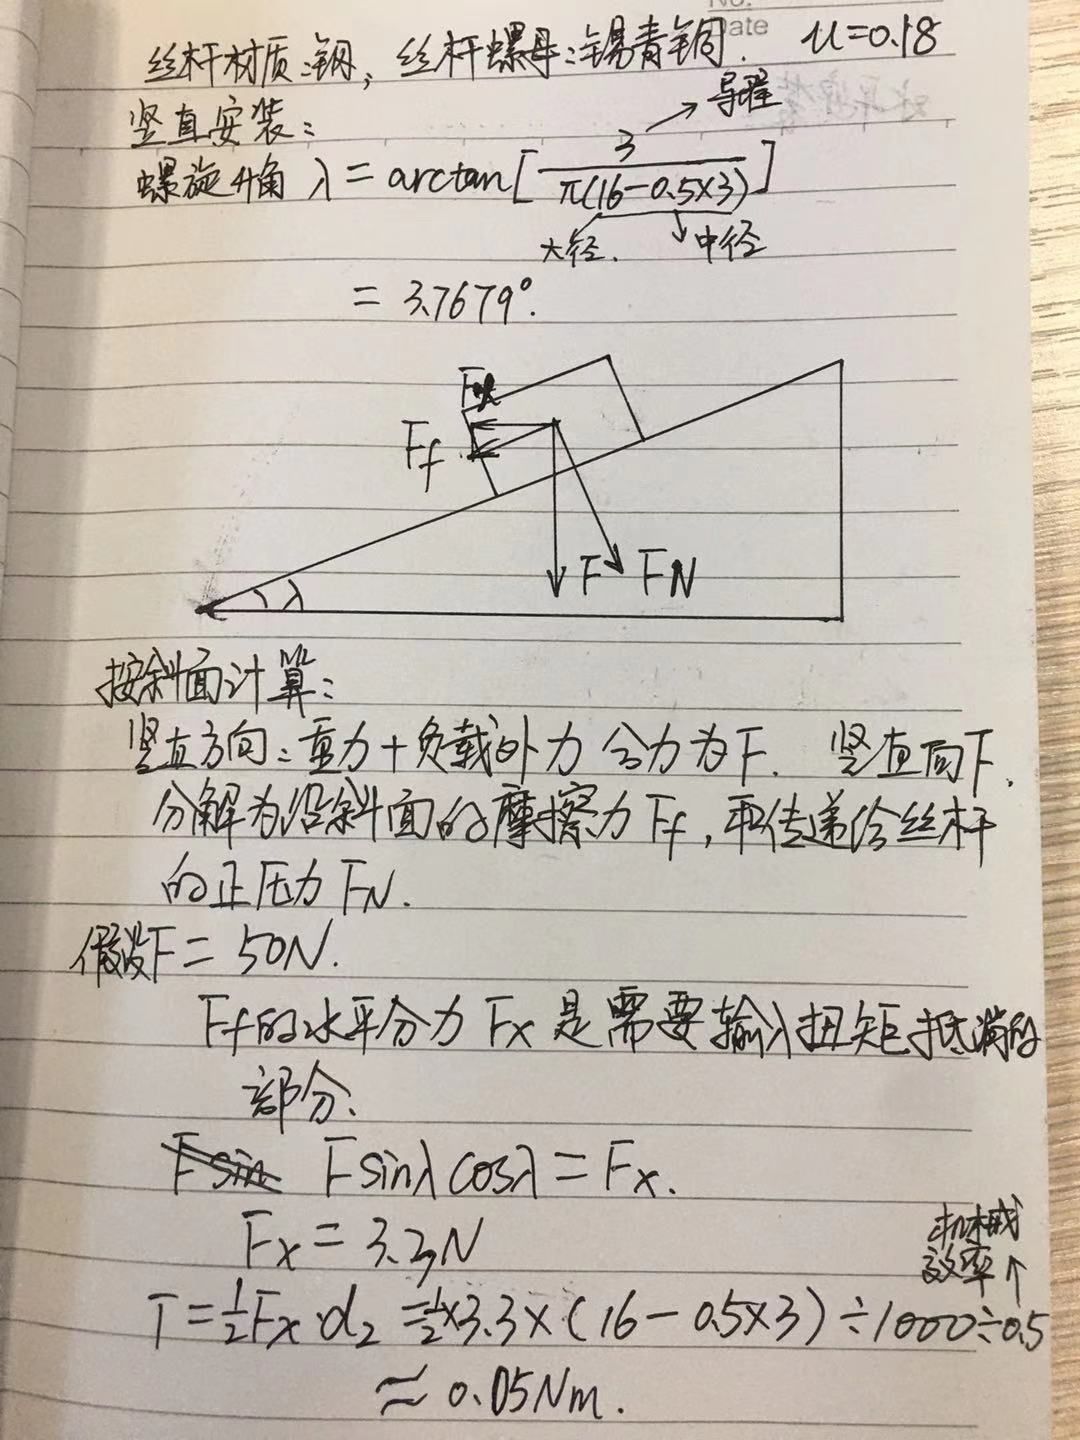 No.
Date
丝杆材质:钢, 丝杆螺母:锡青铜. u=0.18
→ 导程
竖直安装:
螺旋升角 λ = arctan[ 3 / π(16-0.5×3) ]
大径. 中径
= 3.7679°.
Fx
Ff
F FN
λ
按斜面计算:
竖直方向:重力+负载外力 合力为F. 竖直向下.
分解为沿斜面的摩擦力 Ff, 和传递给丝杆
的正压力 FN.
假设F = 50N.
Ff的水平分力 Fx 是需要输入扭矩抵消的
部分.
F sinλ cosλ = Fx.
Fx = 3.3N
机械
效率↑
T = ½Fx·d₂ = ½×3.3×(16-0.5×3)÷1000÷0.5
≈ 0.05Nm.